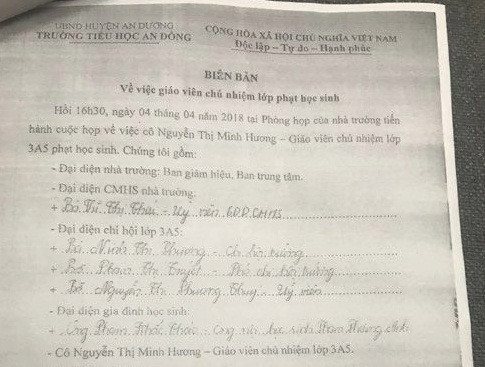 UBND HUYỆN AN DƯƠNG
TRƯỜNG TIỂU HỌC AN ĐỒNG
CỘNG HÒA XÃ HỘI CHỦ NGHĨA VIỆT NAM
Độc lập – Tự do – Hạnh phúc
BIÊN BẢN
Về việc giáo viên chủ nhiệm lớp phạt học sinh
Hồi 16h30, ngày 04 tháng 04 năm 2018 tại Phòng họp của nhà trường tiến
hành cuộc họp về việc cô Nguyễn Thị Minh Hương – Giáo viên chủ nhiệm lớp
3A5 phạt học sinh. Chúng tôi gồm:
- Đại diện nhà trường: Ban giám hiệu, Ban trung tâm.
- Đại diện CMHS nhà trường:
+ Bà Thị Thái - Uỷ viên CMHS
- Đại diện chi hội lớp 3A5:
+ Bà Ninh Thị Thương - Chi hội trưởng
+ Bà Phạm Thị Tuyết - Phó chi hội trưởng
+ Bà Nguyễn Thị Phương Thuý - Uỷ viên
- Đại diện gia đình học sinh:
+ Ông Phạm Khắc - Ông nội học sinh Phạm Phương
- Cô Nguyễn Thị Minh Hương – Giáo viên chủ nhiệm lớp 3A5.